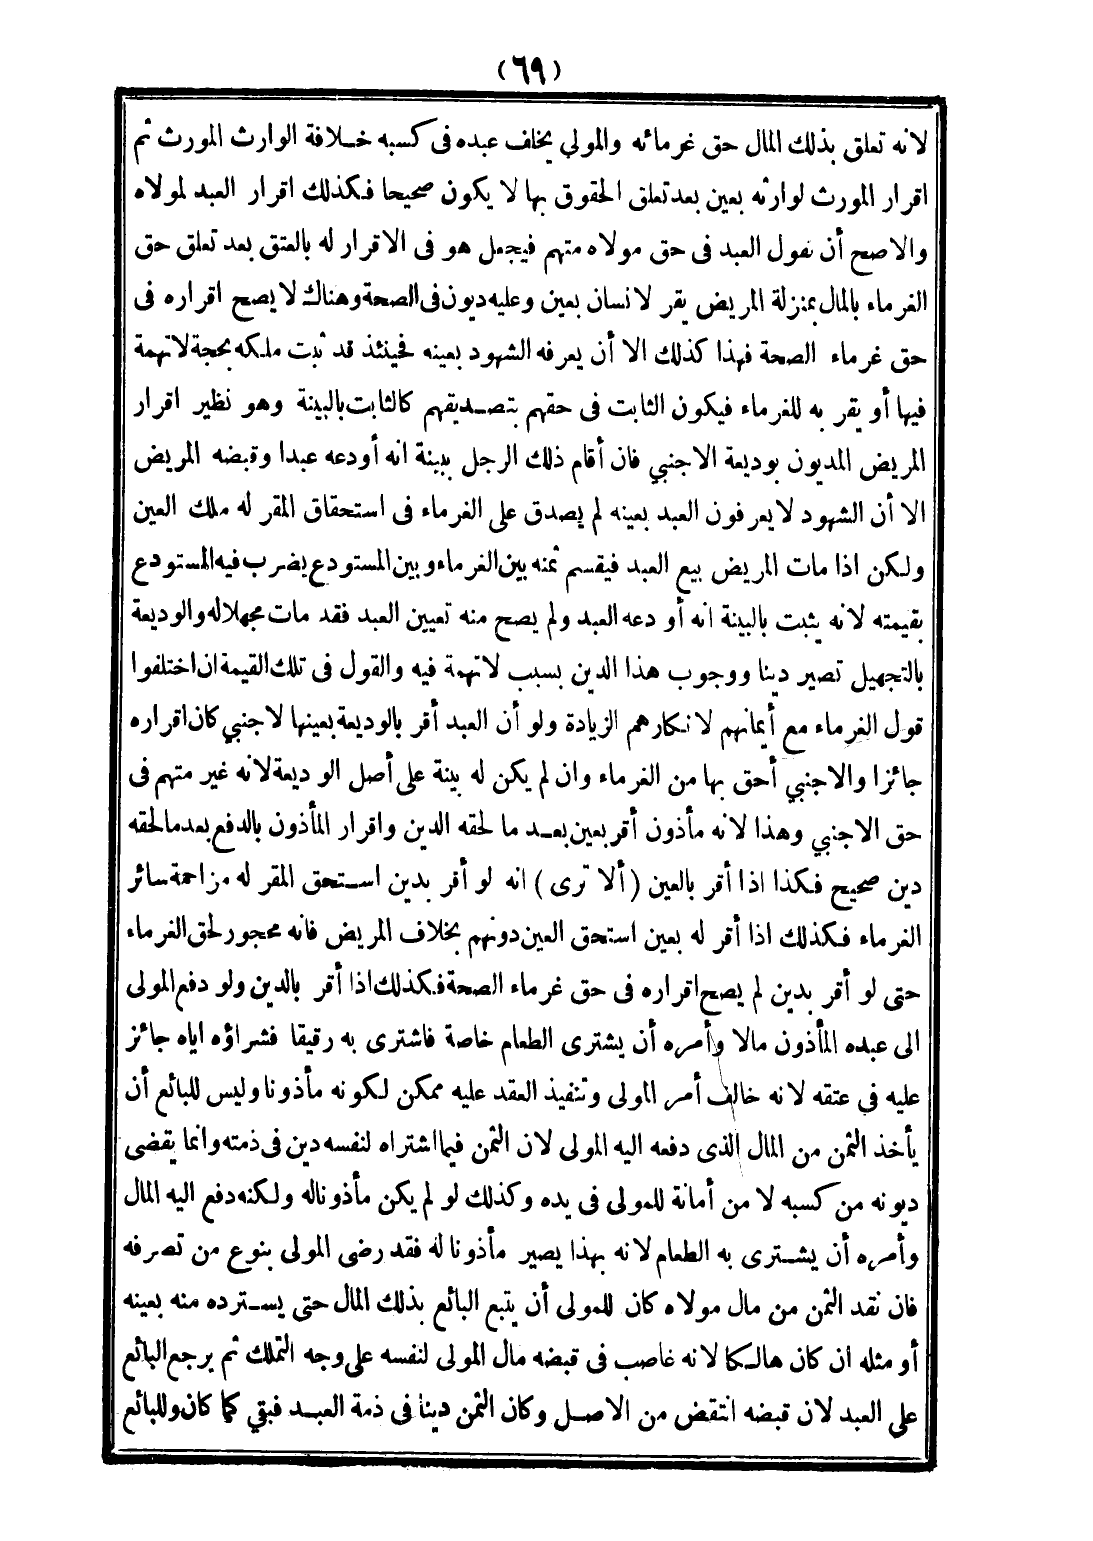 (٦٩)
لانه تعلق بذلك المال حق غرمائه والمولي يخلف عبده فى كسبه خلافة الوارث المورث ثم
اقرار المورث لوارثه بعين بعد تعلق الحقوق بها لا يكون صحيحا فكذلك اقرار العبد لمولاه
والاصح أن نقول العبد فى حق مولاه متهم فيجعل هو فى الاقرار له بالعتق بعد تعلق حق
الغرماء بالمال بمنزلة المريض يقر لانسان بعين وعليه ديون فى الصحة وهناك لا يصح اقراره فى
حق غرماء الصحة فهذا كذلك الا أن يعرفه الشهود بعينه فحينئذ قد ثبت ملكه بحجة لا تهمة
فيها أو يقر به للغرماء فيكون الثابت فى حقهم بتصديقهم كالثابت بالبينة وهو نظير اقرار
المريض المديون بوديعة الاجنبي فان أقام ذلك الرجل ببينة انه أودعه عبدا وقبضه المريض
الا أن الشهود لا يعرفون العبد بعينه لم يصدق على الغرماء فى استحقاق المقر له ملك العين
ولكن اذا مات المريض بيع العبد فيقسم ثمنه بين الغرماء وبين المستودع يضرب فيه المستودع
بقيمته لانه يثبت بالبينة انه أو دعه العبد ولم يصح منه تعيين العبد فقد مات مجهلا له والوديعة
بالتجهيل تصير دينا ووجوب هذا الدين بسبب لا تهمة فيه والقول فى تلك القيمة ان اختلفوا
قول الغرماء مع أيمانهم لانكارهم الزيادة ولو أن العبد أقر بالوديعة بعينها لاجنبي كان اقراره
جائزا والاجنبي أحق بها من الغرماء وان لم يكن له بينة على أصل الوديعة لانه غير متهم فى
حق الاجنبي وهذا لانه مأذون أقر بعين بعد ما لحقه الدين واقرار المأذون بالدفع بعد ما لحقه
دين صحيح فكذا اذا أقر بالعين (ألا ترى) انه لو أقر بدين استحق المقر له مزاحمة سائر
الغرماء فكذلك اذا أقر له بعين استحق العين دونهم بخلاف المريض فانه محجور لحق الغرماء
حتى لو أقر بدين لم يصح اقراره فى حق غرماء الصحة فكذلك اذا أقر بالدين ولو دفع المولى
الى عبده المأذون مالا وأمره أن يشترى الطعام خاصة فاشترى به رقيقا فشراؤه اياه جائز
عليه في عتقه لانه خالف أمر المولى وتنفيذ العقد عليه ممكن لكونه مأذونا وليس للبائع أن
يأخذ الثمن من المال الذى دفعه اليه المولى لان الثمن فيما اشتراه لنفسه دين فى ذمته وانما يقضى
ديونه من كسبه لا من أمانة للمولى فى يده وكذلك لو لم يكن مأذونا له ولكنه دفع اليه المال
وأمره أن يشترى به الطعام لانه بهذا يصير مأذونا له فقد رضى المولى بنوع من تصرفه
فان نقد الثمن من مال مولاه كان للمولى أن يتبع البائع بذلك المال حتى يسترده منه بعينه
أو مثله ان كان هالكا لانه غاصب فى قبضه مال المولى لنفسه على وجه التملك ثم يرجع البائع
على العبد لان قبضه انتقض من الاصل وكان الثمن دينا فى ذمة العبد فبقي كما كان وللبائع